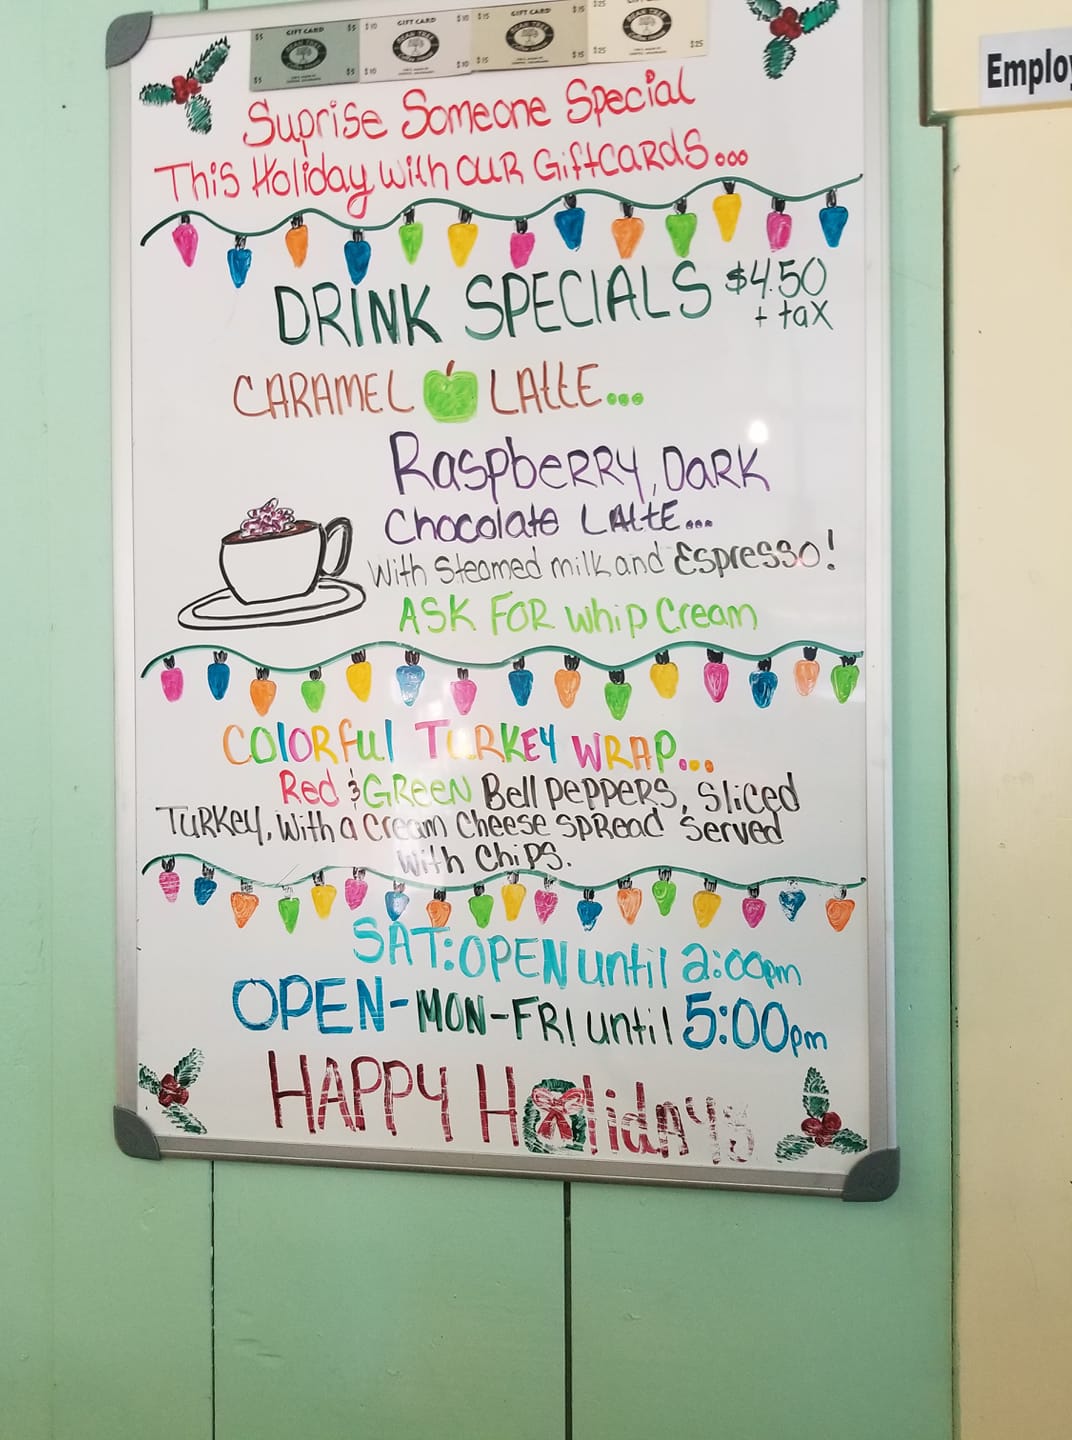 $5 GIFT CARD $5 $10 GIFT CARD $10 $15 GIFT CARD $15 $25
BEAN TREE BEAN TREE BEAN TREE BEAN TREE
$5 $5 $10 $10 $15 $15 $25 $25
Employ
Suprise Someone Special
This Holiday with our Giftcards...
DRINK SPECIALS $4.50
+ tax
CARAMEL LAttE...
Raspberry, Dark
Chocolate LAttE...
With Steamed milk and Espresso!
ASK FOR whip Cream
COlORful TURKEY WRAP...
Red & GREEN Bell PEPPERS, Sliced
TURKEY, With a Cream Cheese SPRead Served
with ChiPS.
SAT: OPEN until 2:00pm
OPEN-MON-FRI until 5:00pm
HAPPY Holidays